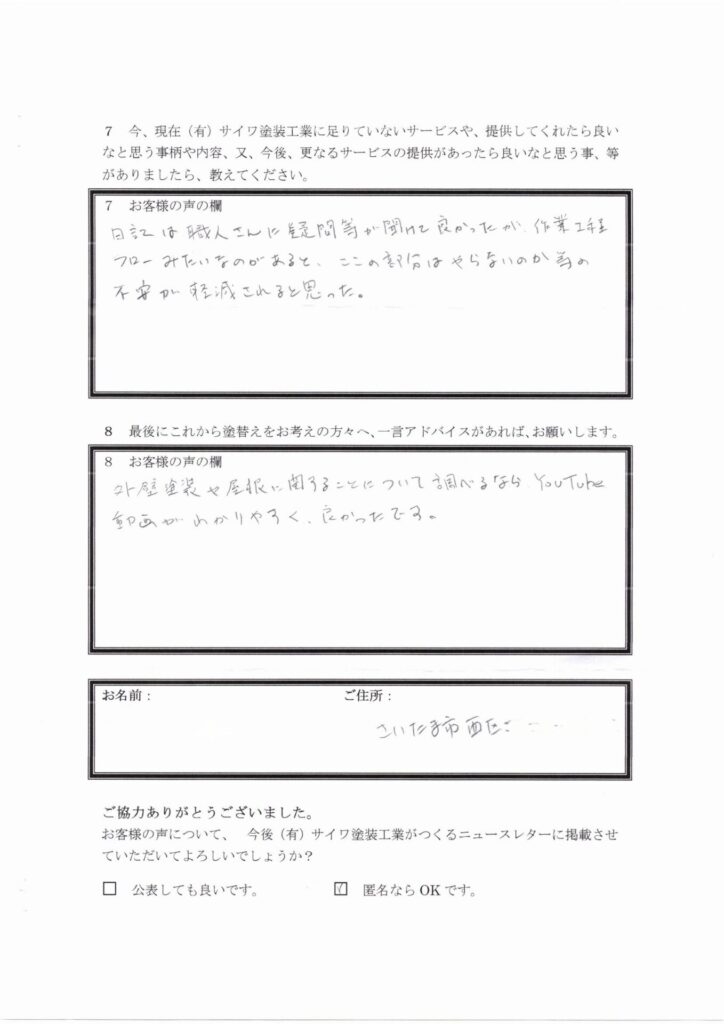 7 今、現在（有）サイワ塗装工業に足りていないサービスや、提供してくれたら良い
なと思う事柄や内容、又、今後、更なるサービスの提供があったら良いなと思う事、等
がありましたら、教えてください。
7 お客様の声の欄
日記は職人さんに疑問等が聞けて良かったが、作業工程
フローみたいなのがあると、ここの部分はやらないのか等の
不安が軽減されると思った。
8 最後にこれから塗替えをお考えの方々へ、一言アドバイスがあれば、お願いします。
8 お客様の声の欄
外壁塗装や屋根に関することについて調べるなら、YouTube
動画がわかりやすく、良かったです。
お名前： ご住所：
さいたま市西区
ご協力ありがとうございました。
お客様の声について、 今後（有）サイワ塗装工業がつくるニュースレターに掲載させ
ていただいてよろしいでしょうか？
□ 公表しても良いです。 ☑ 匿名なら OK です。